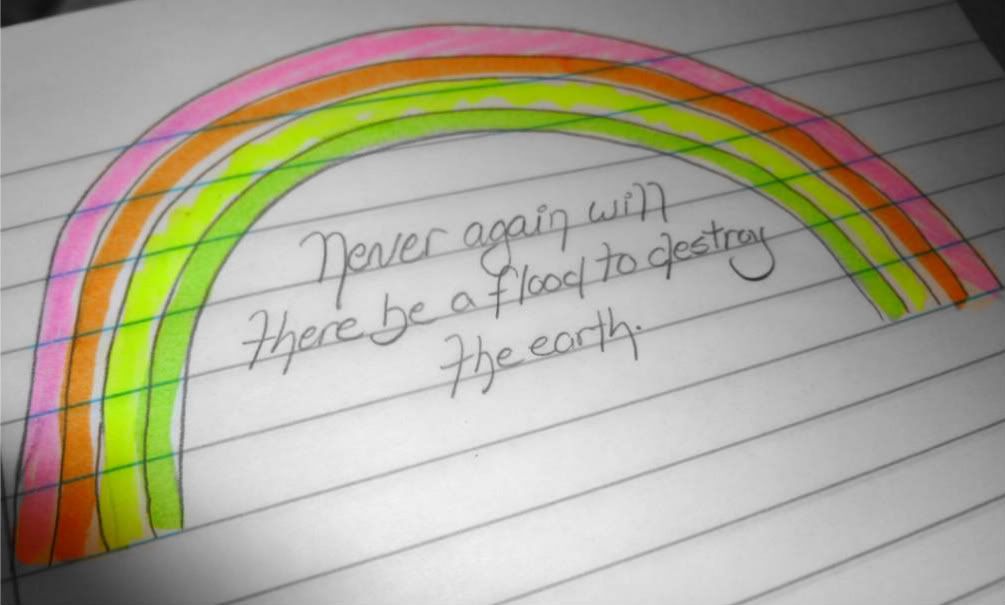 Never again will
there be a flood to destroy
the earth.